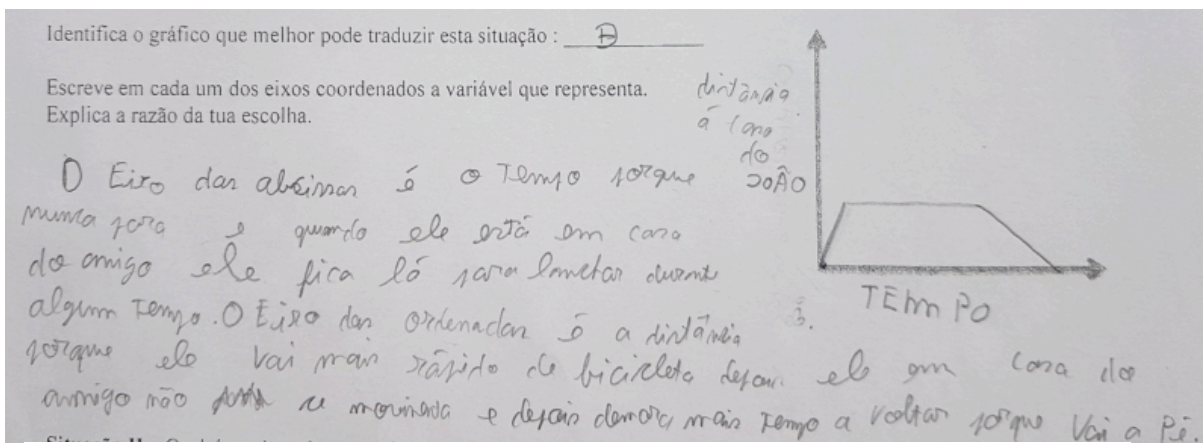 Identifica o gráfico que melhor pode traduzir esta situação : D
Escreve em cada um dos eixos coordenados a variável que representa.
Explica a razão da tua escolha.
distância
á casa
do
JOÃO
O Eixo das abcissas é o Tempo porque
nunca para e quando ele está em casa
do amigo ele fica lá para lanchar durante
algum Tempo. O Eixo das ordenadas é a distância
porque ele vai mais rápido de bicicleta depois ele em casa do
amigo não se movimenta e depois demora mais Tempo a voltar porque vai a Pé
TEMPO